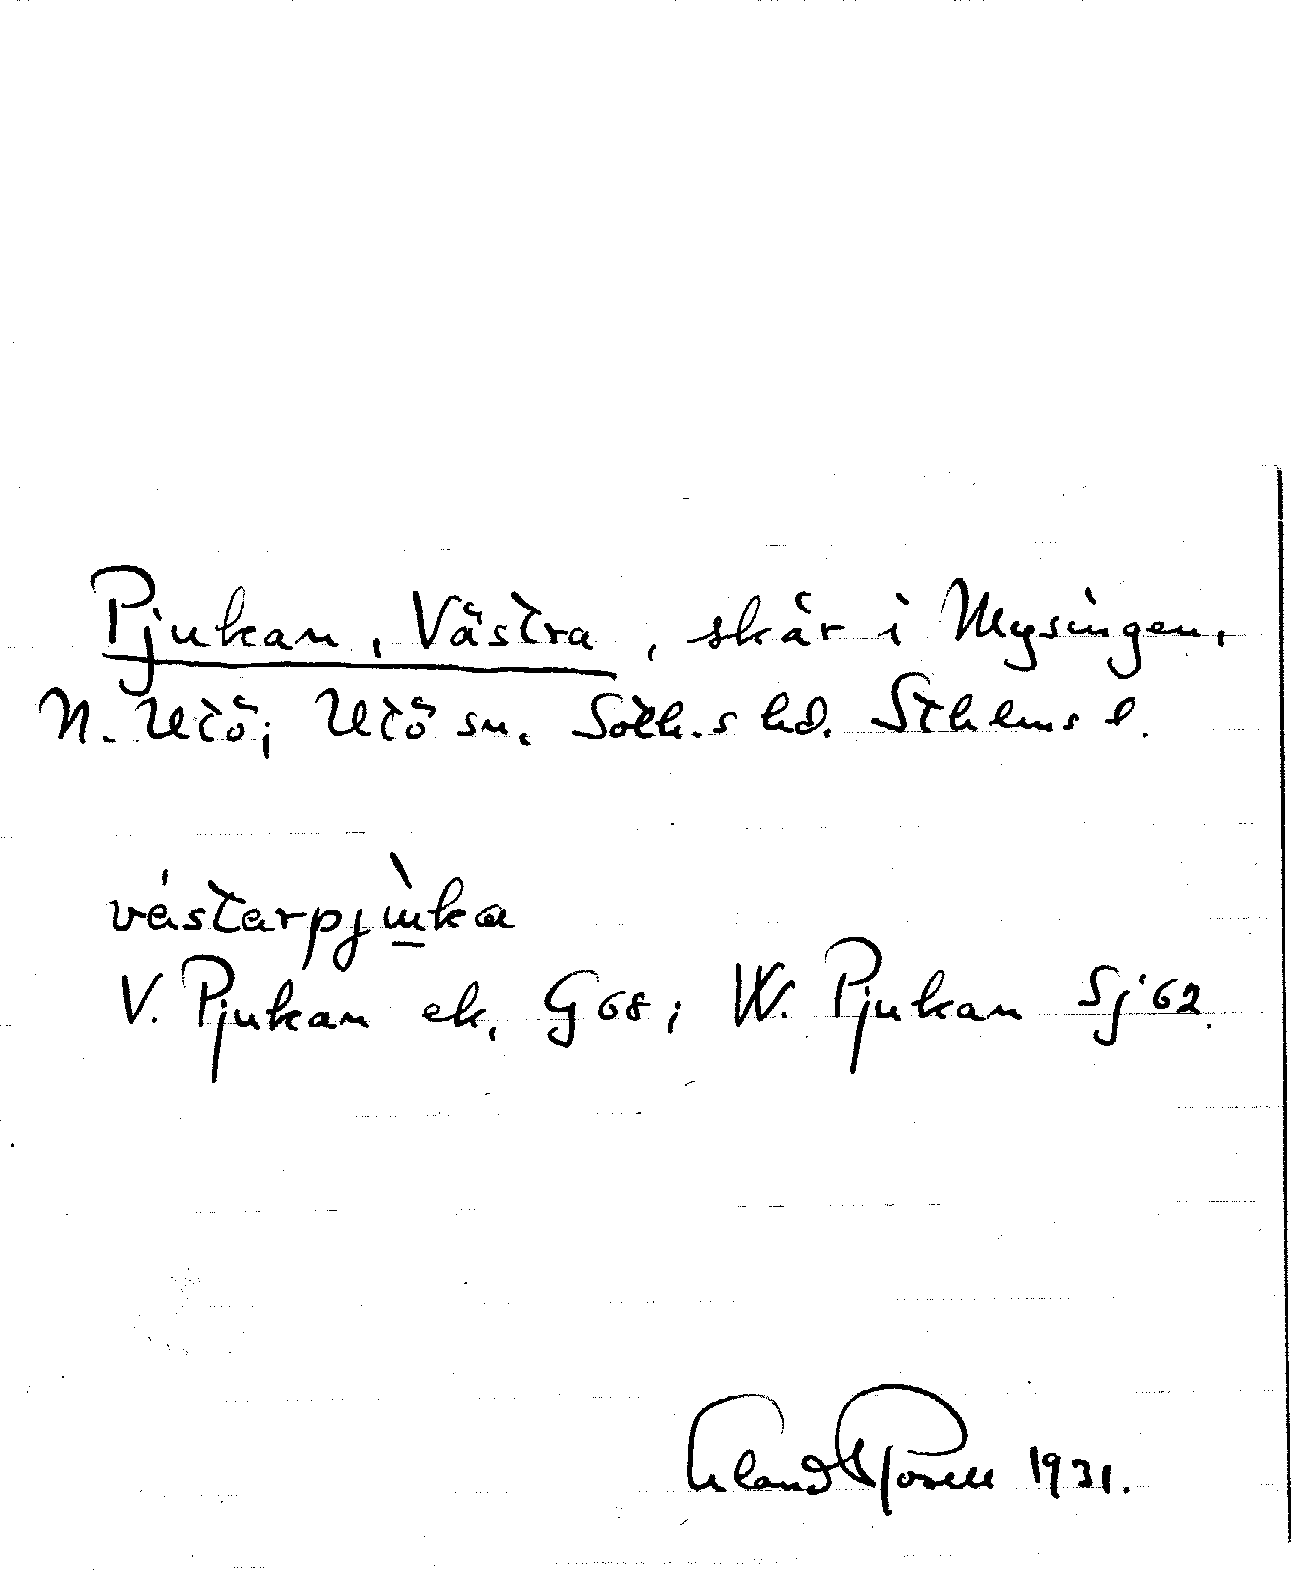 Pjukan, Västra, skär i Mysingen,
N. Utö; Utö sn. Soth.s hd. Sthlms l.
västarpjɯ̀ka
V. Pjukan ek. G 68; W. Pjukan Sj 62.
Erland Rosell 1931.